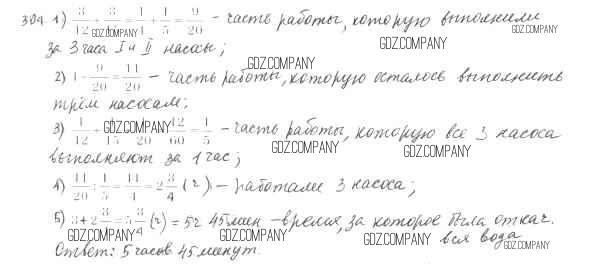 304 1) 3/12 + 3/15 = 1/4 + 1/5 = 9/20 - часть работы, которую выполнили
GDZ.COMPANY GDZ.COMPANY
за 3 часа I и II насосы;
GDZ.COMPANY
2) 1 - 9/20 = 11/20 - часть работы, которую осталось выполнить
трём насосам;
3) 1/12 + 1/15 + 1/20 = 12/60 = 1/5 - часть работы, которую все 3 насоса
GDZ.COMPANY GDZ.COMPANY GDZ.COMPANY
выполняют за 1 час;
4) 11/20 : 1/5 = 11/4 = 2 3/4 (ч) - работали 3 насоса;
5) 3 + 2 3/4 = 5 3/4 (ч) = 5 ч 45 мин - время, за которое была откач.
GDZ.COMPANY GDZ.COMPANY GDZ.COMPANY GDZ.COMPANY
вся вода
Ответ: 5 часов 45 минут.